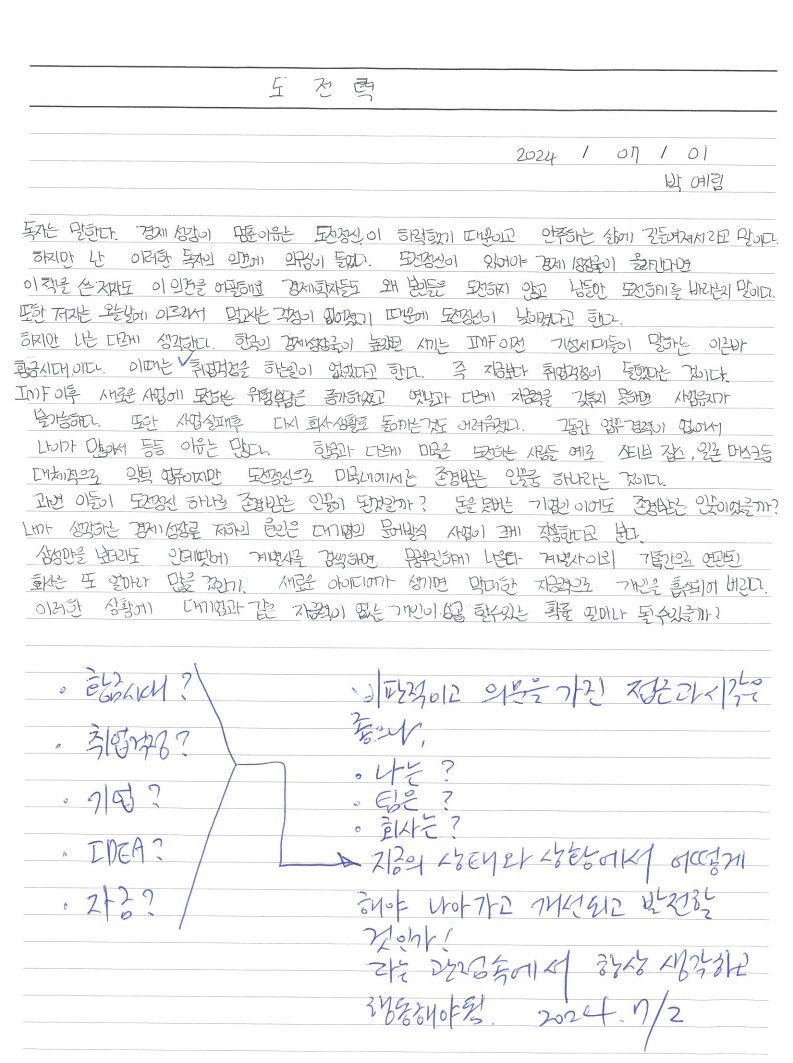 도 전 력
2024 / 07 / 01
박 예림
독자는 말한다. 경제 성장이 멈춘이유는 도전정신이 하락했기 때문이고 안주하는 삶에 길들여져서라고 말이다.
하지만 난 이러한 독자의 의견에 의구심이 들었다. 도전정신이 있어야 경제 성장률이 올라간다면
이 책을 쓴 저자도 이 의견을 어필하고 경제학자들도 왜 본인들은 도전하지 않고 남들만 도전하기를 바라는지 말이다.
또한 저자는 오늘날에 이르러서 먹고사는 걱정이 없어졌기 때문에 도전정신이 낮아졌다고 한다.
하지만 나는 다르게 생각한다. 한국의 경제성장률이 높았던 시기는 IMF이전 기성세대들이 말하는 이른바
황금시대이다. 이때는 취업걱정을 하는일이 없었다고 한다. 즉 지금보다 취업걱정이 덜했다는 것이다.
IMF이후 새로운 사업에 도전하는 위험부담은 증가하였고 옛날과 다르게 자금력을 갖추지 못하면 사업유지가
불가능하다. 또한 사업실패후 다시 회사생활로 돌아가는것도 어려워졌다. 그동안 업무경력이 없어서
나이가 많아서 등등 이유는 많다. 한국과 다르게 미국은 도전하는 사람들 예로 스티브 잡스, 일론 머스크등
대체적으로 악독 업주이지만 도전정신으로 미국내에서는 존경받는 인물중 하나라는 것이다.
과연 이들이 도전정신 하나로 존경받는 인물이 된것일까? 돈을 못버는 기업인 이어도 존경받는 인물이였을까?
내가 생각하는 경제성장률 저하의 원인은 대기업의 문어발식 사업이 크게 작용한다고 본다.
삼성만을 보더라도 인터넷에 계열사를 검색하면 무궁무진하게 나온다 계열사이외 가족간으로 연관된
회사는 또 얼마나 많을 것인가. 새로운 아이디어가 생기면 막대한 자금력으로 개인을 흡수되어 버린다.
이러한 상황에 대기업과 같은 자금력이 없는 개인이 성공 할수있는 확률 얼마나 될수있을까?
· 황금시대?
· 취업걱정?
· 기업?
· IDEA?
· 자금?
비판적이고 의문을 가진 접근과 시각은
좋으나,
· 나는?
· 팀은?
· 회사는?
지금의 상태와 상황에서 어떻게
해야 나아가고 개선되고 발전할
것인가!
라는 관점속에서 항상 생각하고
행동해야됨. 2024. 7/2